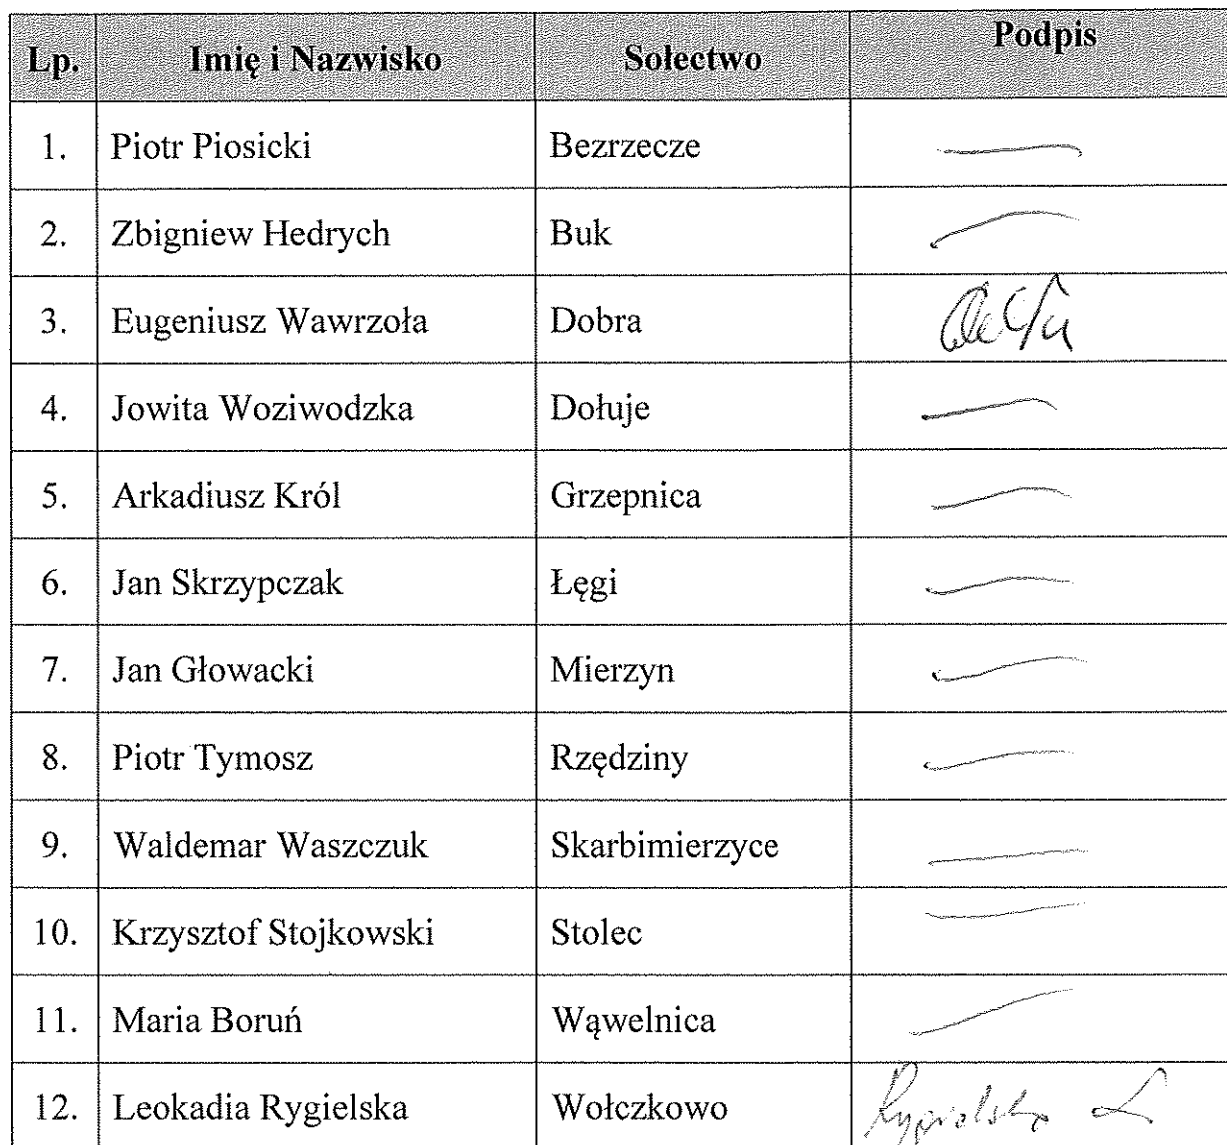 Lp. Imię i Nazwisko Sołectwo Podpis
1. Piotr Piosicki Bezrzecze
2. Zbigniew Hedrych Buk
3. Eugeniusz Wawrzoła Dobra
4. Jowita Woziwodzka Dołuje
5. Arkadiusz Król Grzepnica
6. Jan Skrzypczak Łęgi
7. Jan Głowacki Mierzyn
8. Piotr Tymosz Rzędziny
9. Waldemar Waszczuk Skarbimierzyce
10. Krzysztof Stojkowski Stolec
11. Maria Boruń Wąwelnica
12. Leokadia Rygielska Wołczkowo Rygielska L